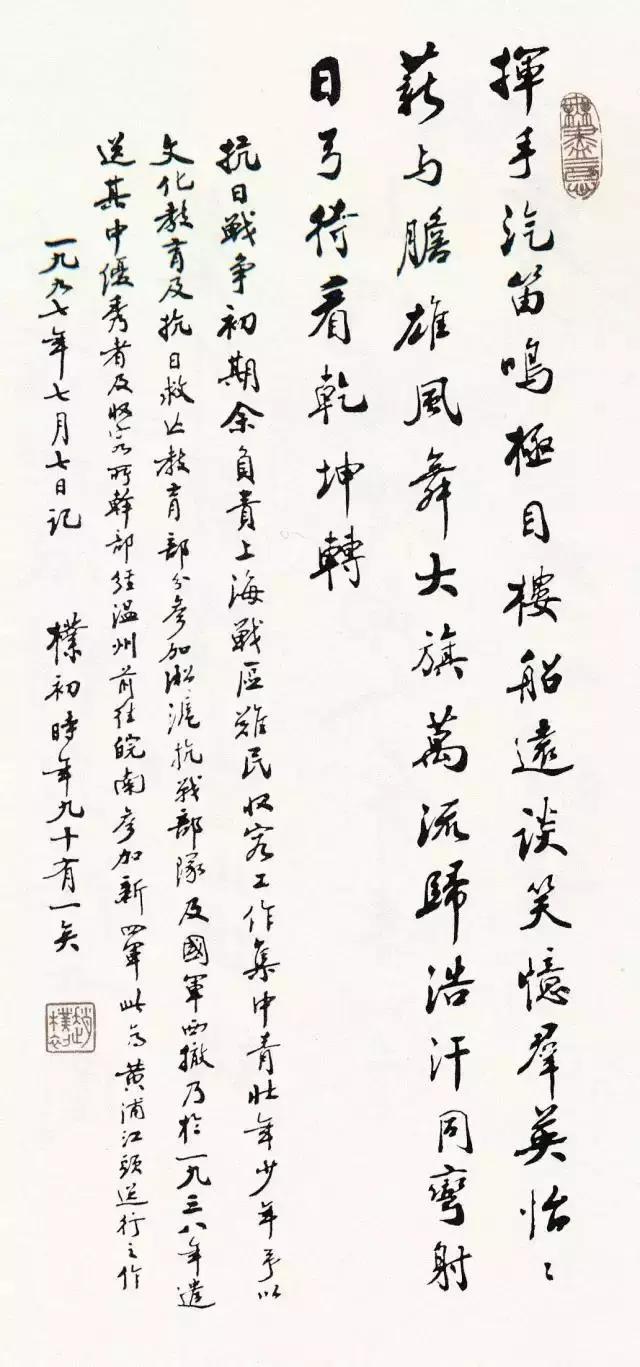 揮手汽笛鳴極目樓船遠談笑憶羣英怡〻
薪与膽雄風舞大旗萬流歸浩汗同彎射
日弓待看乾坤轉
抗日戰争初期余負責上海戰区難民收容工作集中青壯年少年予以
文化教育及抗日救亡教育部分參加淞滬抗戰部隊及國軍西撤乃於一九三八年遣
送其中優秀者及收容所幹部經温州前往皖南參加新四軍此為黄浦江頭送行之作
一九九七年七月七日記
樸初時年九十有一矣
趙樸初